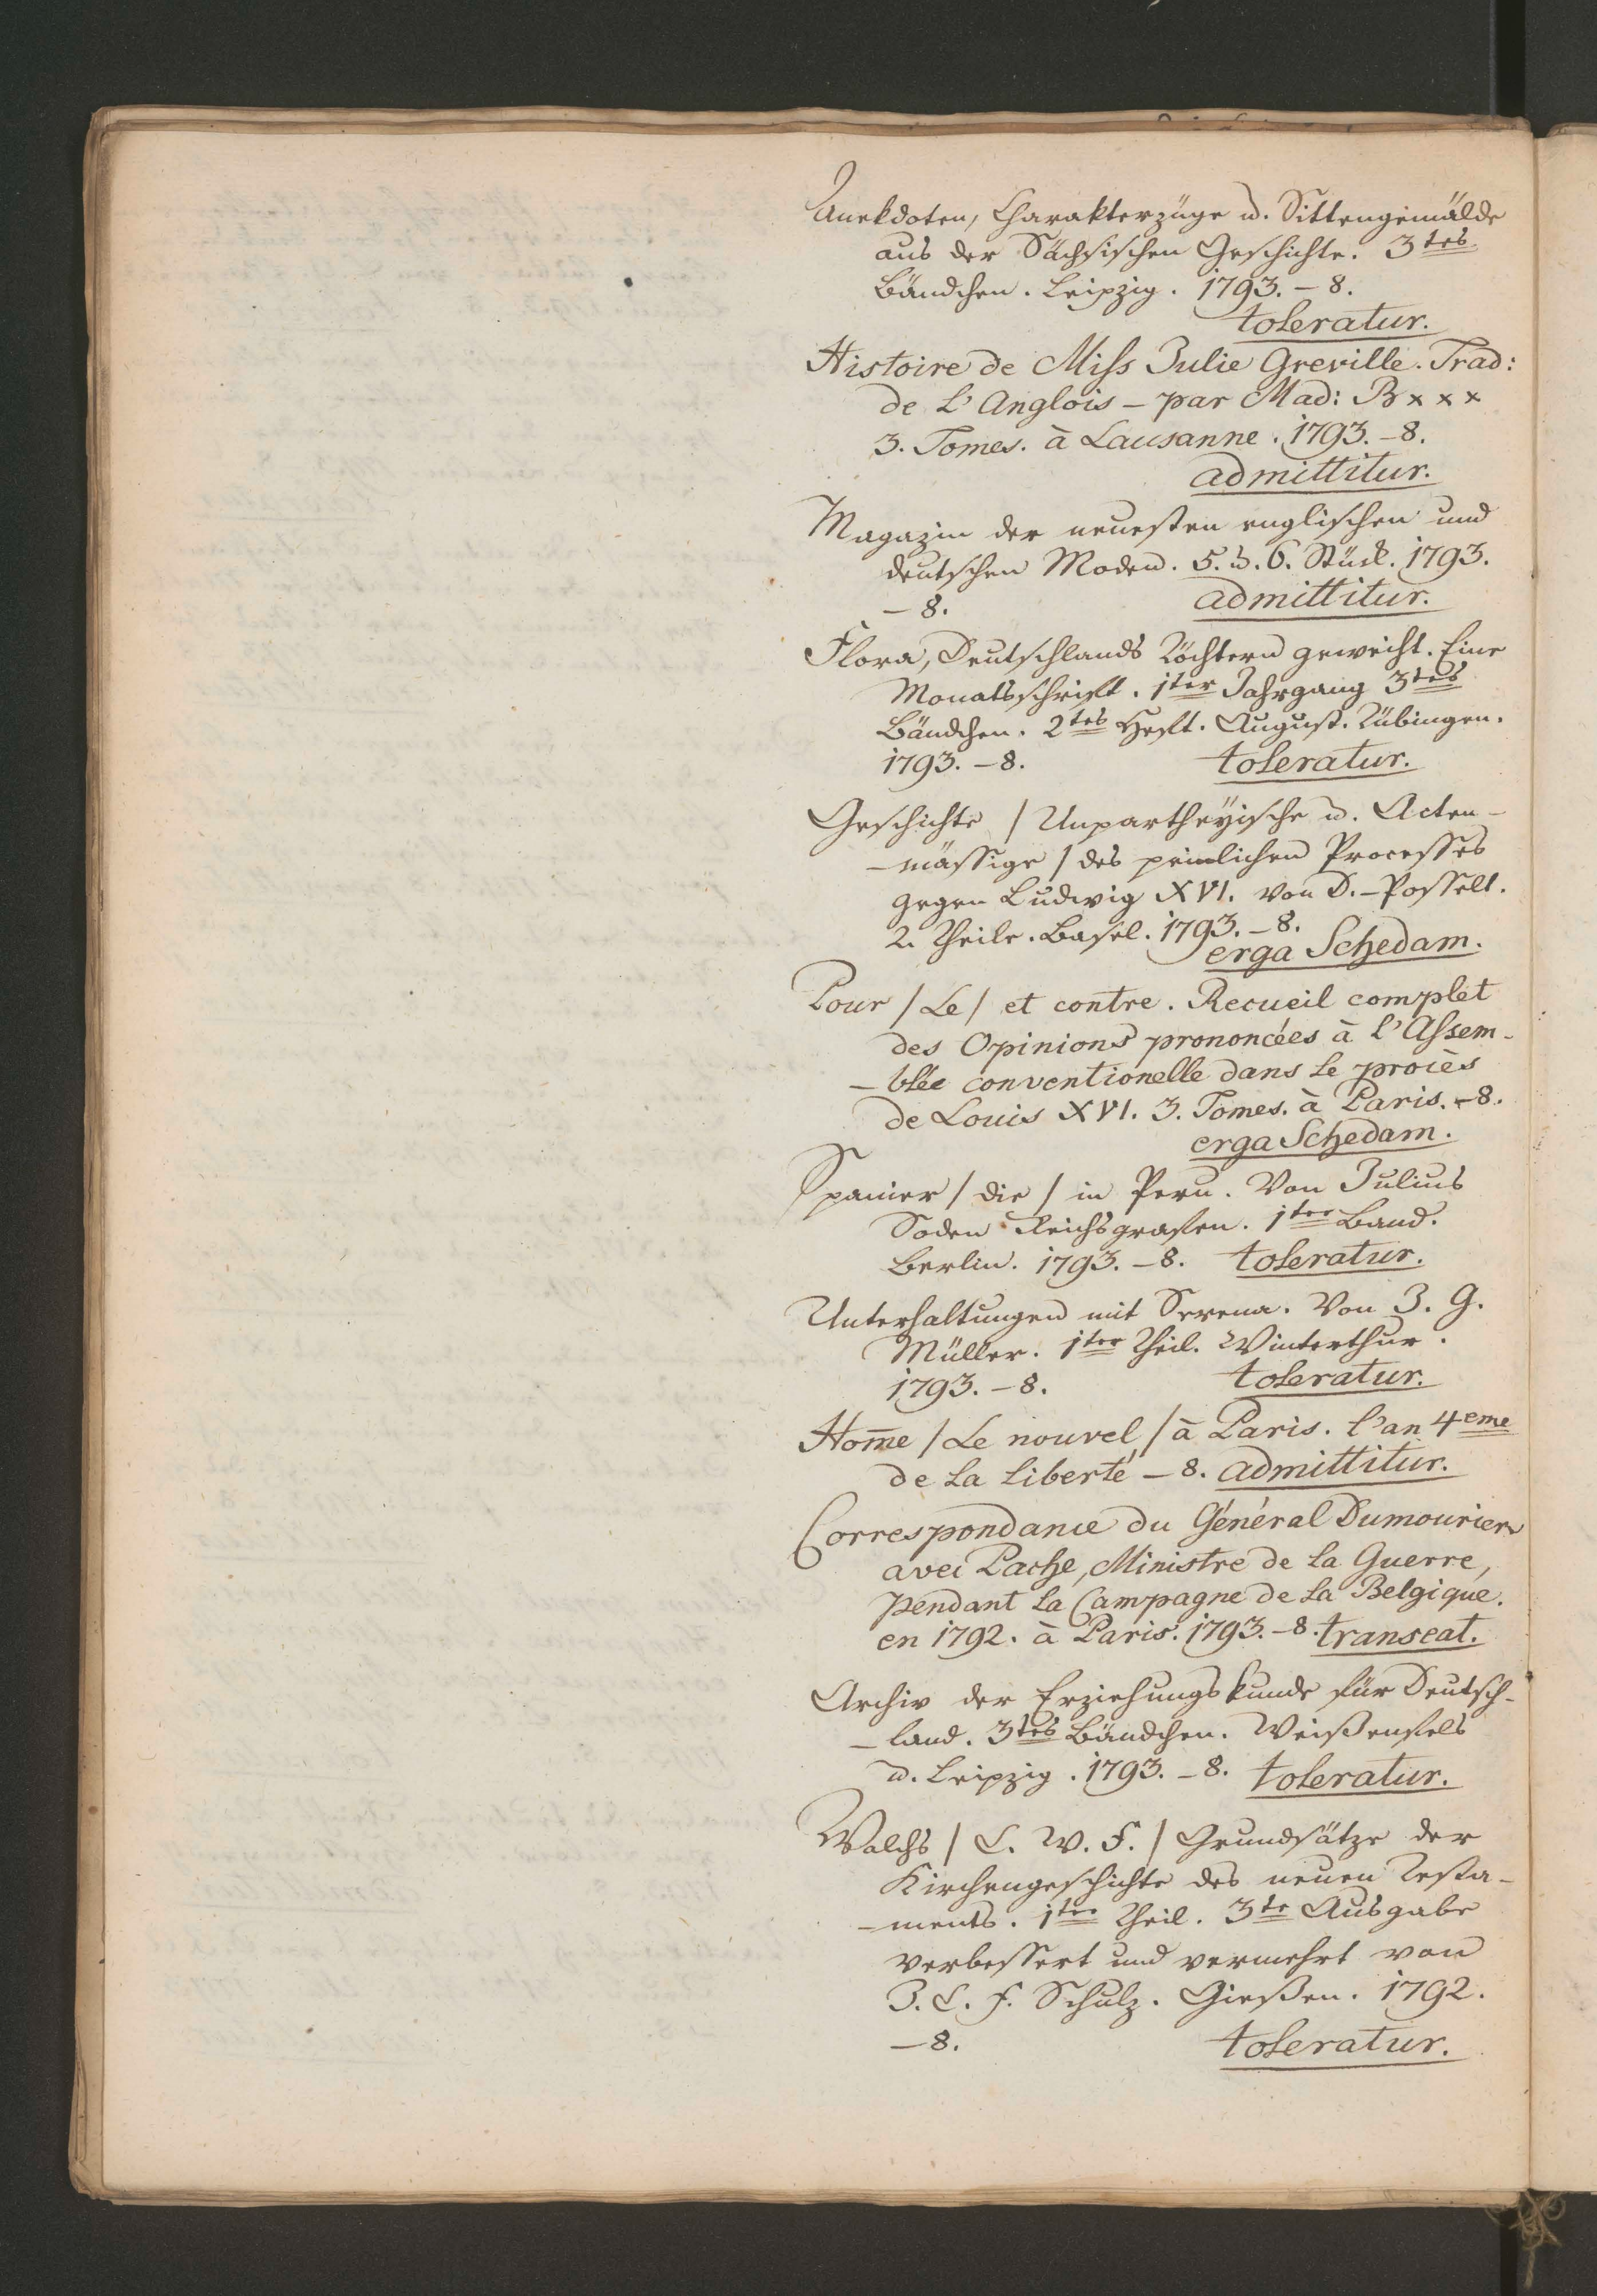 Anekdoten, Charakterzüge u. Sittengemälde
aus der Sächsischen Geschichte. 3tes
Bändchen. Leipzig. 1793. – 8.
toleratur.
Histoire de Miss Julie Greville. Trad:
de L'Anglois – par Mad: B x x x
3. Tomes. à Lausanne. 1793. – 8.
admittitur.
Magazin der neuesten englischen und
deutschen Moden. 5. u. 6. Stück. 1793.
– 8. admittitur.
Flora, Deutschlands Töchtern geweiht. Eine
Monatsschrift. 1ter Jahrgang 3tes
Bändchen. 2tes Heft. August. Tübingen.
1793. – 8. toleratur.
Geschichte / Unpartheyische u. Acten-
-mässige / des peinlichen Processes
gegen Ludwig XVI. von D. – Posselt.
2. Theile. Basel. 1793. – 8.
erga Schedam.
Pour / Le / et contre. Recueil complet
des Opinions prononcées à l'Assem-
-blée conventionelle dans le procès
de Louis XVI. 3. Tomes. à Paris. – 8.
erga Schedam.
Spanier / die / in Peru. Von Julius
Soden Reichsgrafen. 1ter Band.
Berlin. 1793. – 8. toleratur.
Unterhaltungen mit Serena. Von J. G.
Müller. 1ter Theil. Winterthur.
1793. – 8. toleratur.
Hom̅e / Le nouvel / à Paris. l'an 4eme
de la liberté – 8. admittitur.
Correspondance du Général Dumourier
avec Pache, Ministre de la Guerre,
pendant la Campagne de la Belgique.
en 1792. à Paris. 1793. – 8. transeat.
Archiv der Erziehungskunde für Deutsch-
-land. 3tes Bändchen. Weißenfels
u. Leipzig. 1793. – 8. toleratur.
Walchs / C. W. F. / Grundsätze der
Kirchengeschichte des neuen Testa-
-ments. 1ter Theil. 3te Ausgabe
verbessert und vermehrt von
J. C. F. Schulz. Gießen. 1792.
– 8. toleratur.